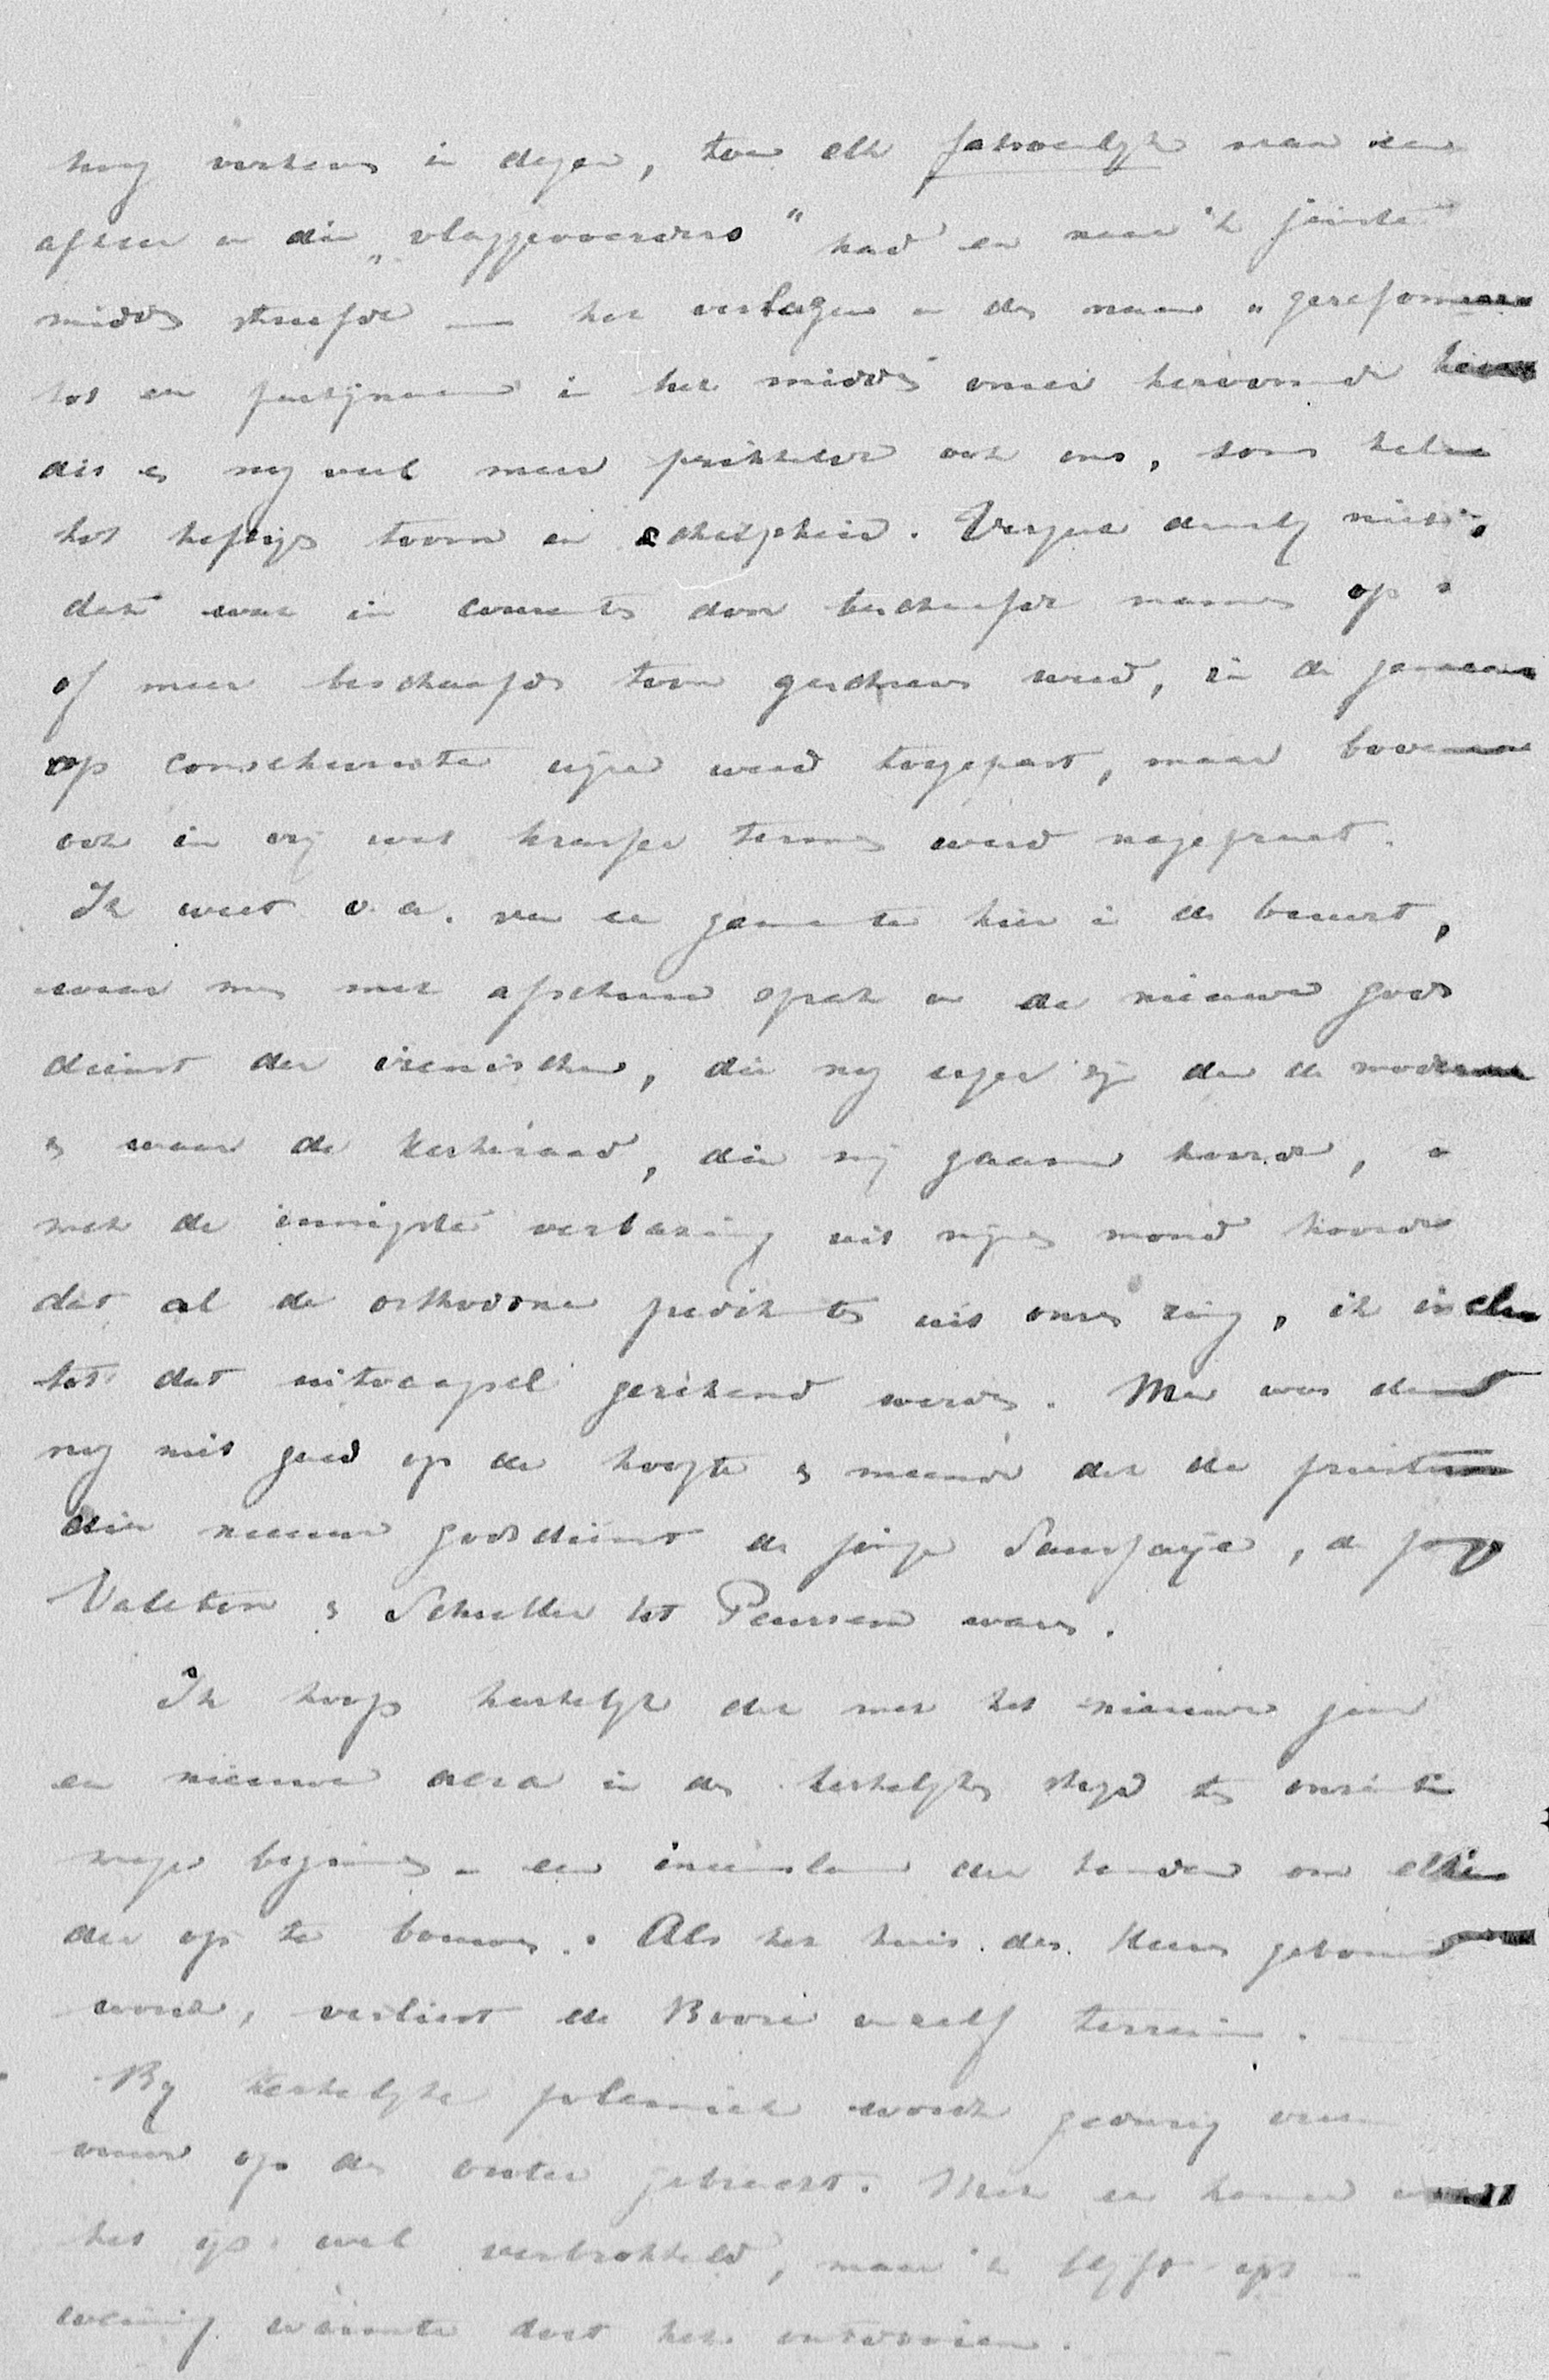 nog verkeer in dagen, toen elk fatsoenlijk man een
afkeer van die „vlaggevoerders" had en naar 't juiste
midden streefde — het verlagen van den naam „gereformeerd
tot een partijnaam in het midden onzer hervormde
dit is nog veel meer prikkelde ook ons, soms
tot heftige toorn en scherpheid. Vergeet daarbij niet,
dat wat in couranten door beschaafde mannen op
of meer beschaafden toon geschreven werd, in de gemeenten
op concrete wijze werd toegepast, maar bovendien
ook in vrij wat krasser termen werd nagepraat.
Ik weet o.a. van een gemeente hier in de buurt,
waar men met afschuw sprak van de nieuwe gods
dienst der irenischen, die nog erger zijn dan de modernen
en waar de kerkeraad, die mij gaarne hoorde,
met de innigste verbazing uit mijnen mond hoorde
dat al de orthodoxe predikanten uit onzen ring, ik incluis
tot dat uitvaagsel gerekend werden. Men was daar
nog niet goed op de hoogte en meende dat de priesters
dier nieuwe godsdienst de jonge Saussaye, de jonge
Valeton en Scheltto tot Peursem waren.
Ik hoop hartelijk dat met het nieuwe jaar
een nieuwe aera in den kerkelijken strijd ten onzent
moge beginnen – een ineenslaan der handen om elkan
der op te bouwen. Als het huis des Heeren gebouwd
wordt, verliest de Booze vanzelf terrein. —
By kerkelijke polemiek wordt gedurig
vuur op den outer gebracht. Met een hamer wordt
het ijs wel verbrokkeld, maar 't blijft ijs –
weinig warmte doet het ontdooien.